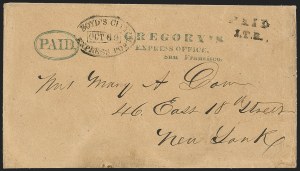 BOYD'S CITY
EXPRESS POST
PAID
GREGORY'S
EXPRESS OFFICE,
San Francisco.
PAID
J.T.B.
Mrs Mary A Dow
46 East 18th Street
New York